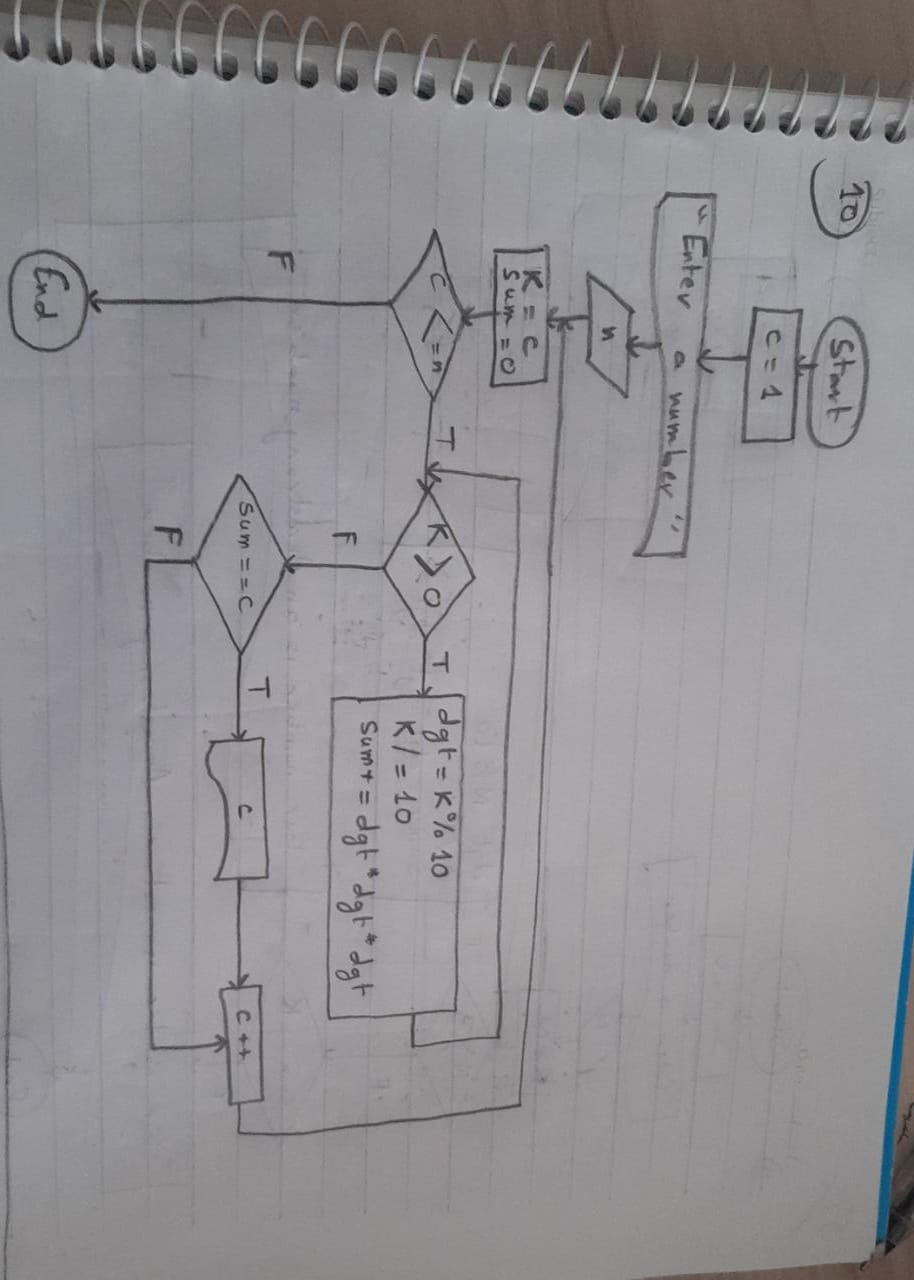 10
Start
c = 1
"Enter a number"
n
K = c
Sum = 0
c <= n
T
F
K > 0
T
F
dgt = K % 10
K / = 10
Sum + = dgt * dgt * dgt
Sum = = c
T
F
c
c ++
End